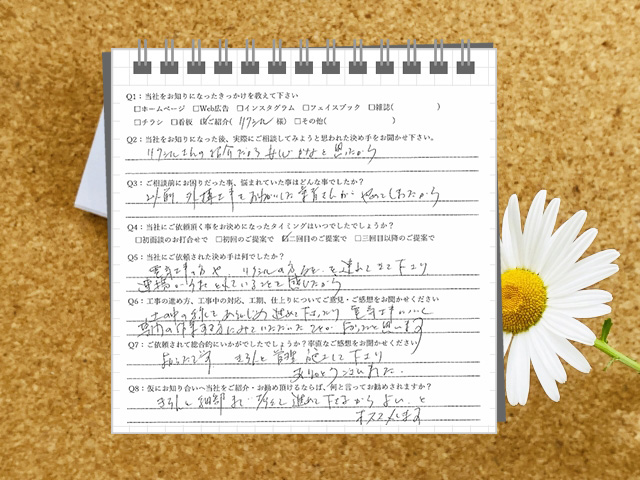 Q1：当社をお知りになったきっかけを教えて下さい
□ホームページ □Web広告 □インスタグラム □フェイスブック □雑誌( )
□チラシ □看板 ☑ご紹介( リクシル 様) □その他( )
Q2：当社をお知りになった後、実際にご相談してみようと思われた決め手をお聞かせ下さい。
リクシルさんの紹介だから安心かなと思ったから
Q3：ご相談前にお困りだった事、悩まれていた事はどんな事でしたか？
以前、外構工事をお願いした業者さんが、やめてしまったから
Q4：当社にご依頼頂く事をお決めになったタイミングはいつでしたでしょうか？
□初面談のお打合せで □初回のご提案で ☑二回目のご提案で □三回目以降のご提案で
Q5：当社にご依頼された決め手は何でしたか？
電気工事の方や、リクシルの方などを連れてきて下さり
連携がうまくとれていることを感じたから
Q6：工事の進め方、工事中の対応、工期、仕上りについてご意見・ご感想をお聞かせください
進めて下さり 電気工事
思います
Q7：ご依頼されて総合的にいかがでしたでしょうか？率直なご感想をお聞かせください
よかったです。きちんと管理 施工して下さり
ありがとうございました。
Q8：仮にお知り合いへ当社をご紹介・お勧め頂けるならば、何と言ってお勧めされますか？
きちんと細部まで 進めて下さるからよい、と
オススメします